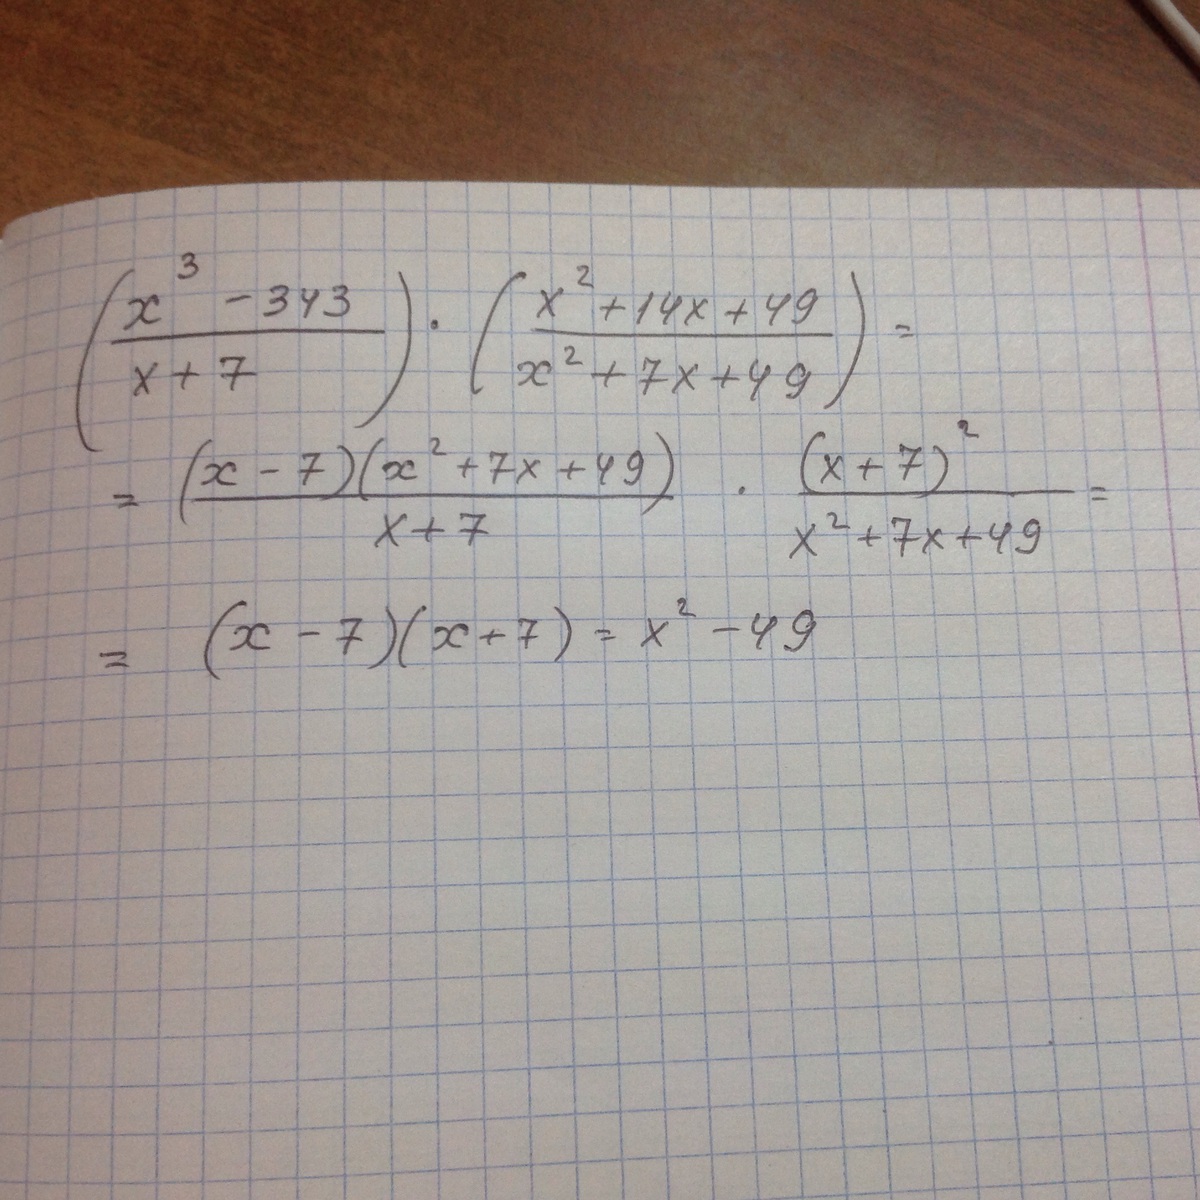 (x³ - 343 / x + 7) · (x² + 14x + 49 / x² + 7x + 49) =
= (x - 7)(x² + 7x + 49) / x + 7 · (x + 7)² / x² + 7x + 49 =
= (x - 7)(x + 7) = x² - 49